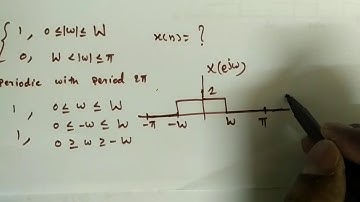 1, 0≤|ω|≤W x(n)= ?
0, W<|ω|≤π
periodic with period 2π
X(e^jω)
1, 0≤ω≤W
1, 0≤-ω≤W
0≥ω≥-W
2
-π -W W π